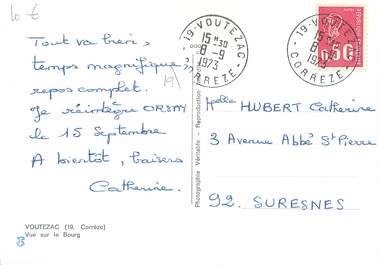 10 €
Tout va bien,
temps magnifique,
repos complet.
Je réintègre ORSAY
le 15 Septembre
A bientôt, baisers
Catherine.
VOUTEZAC (19. Corrèze)
Vue sur le Bourg
19-VOUTEZAC
15 H30
8-9
1973
CORREZE
19-VOUTEZAC
15 H30
8-9
1973
CORREZE
0,50
Photographie Véritable - Reproduction
Melle HUBERT Catherine
3 Avenue Abbé St Pierre
92. SURESNES